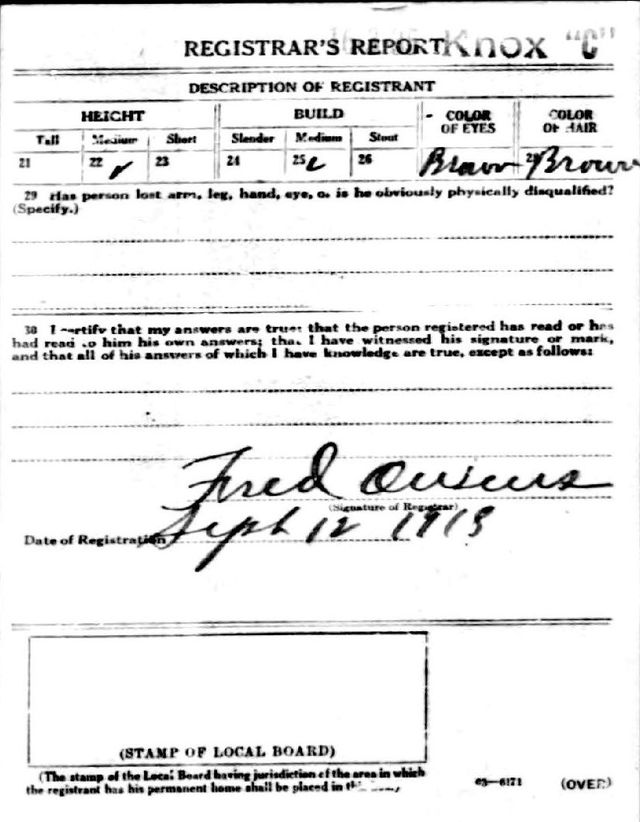 REGISTRAR'S REPORT Knox "C"
DESCRIPTION OF REGISTRANT
HEIGHT BUILD COLOR OF EYES COLOR OF HAIR
Tall Medium Short Slender Medium Stout
21 22 ✓ 23 24 25 ✓ 26 Brown 28 Brown
29 Has person lost arm, leg, hand, eye, or is he obviously physically disqualified?
(Specify.)
30 I certify that my answers are true; that the person registered has read or has
had read to him his own answers; that I have witnessed his signature or mark,
and that all of his answers of which I have knowledge are true, except as follows:
Fred Owens
(Signature of Registrar)
Date of Registration Sept 12 1918
(STAMP OF LOCAL BOARD)
(The stamp of the Local Board having jurisdiction of the area in which
the registrant has his permanent home shall be placed in
03—6171 (OVER)